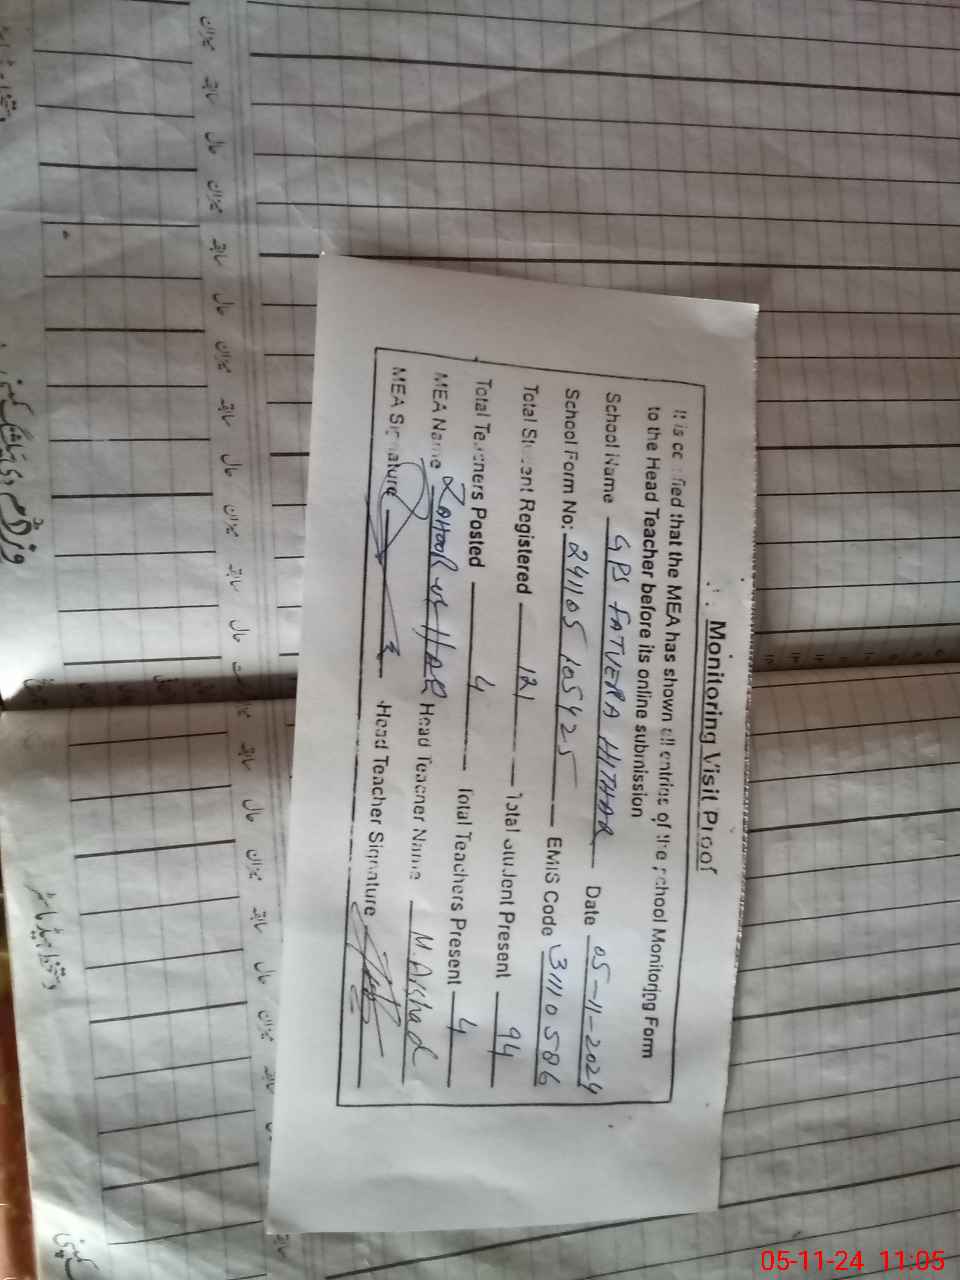 Monitoring Visit Proof
It is certified that the MEA has shown all entries of the school Monitoring Form
to the Head Teacher before its online submission
School Name GPS FATVERA HITHAR Date 05-11-2024
School Form No: 241105 105425 EMIS Code 31110586
Total Student Registered 121 Total Student Present 94
Total Teachers Posted 4 Total Teachers Present 4
MEA Name Zahoor ul HAQ Head Teacher Name M. Arshad
MEA Signature Head Teacher Signature
میزان
سابقہ
حال
میزان
سابقہ
حال
میزان
سابقہ
حال
میزان
سابقہ
حال
دستخط ہیڈ ماسٹر
05-11-24 11:05